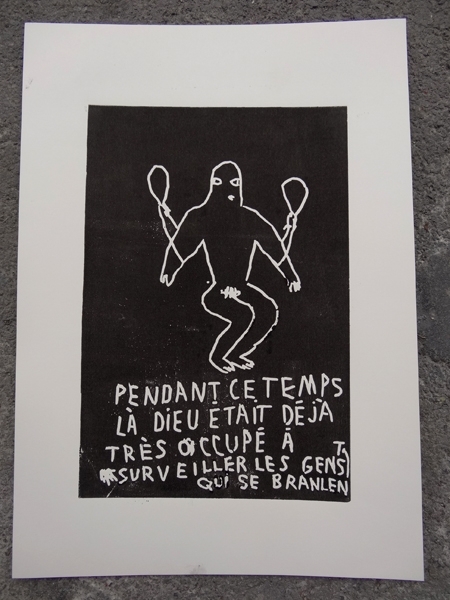 PENDANT CE TEMPS
LÀ DIEU ÉTAIT DÉJÀ
TRÈS OCCUPÉ À
SURVEILLER LES GENS
QUI SE BRANLENT